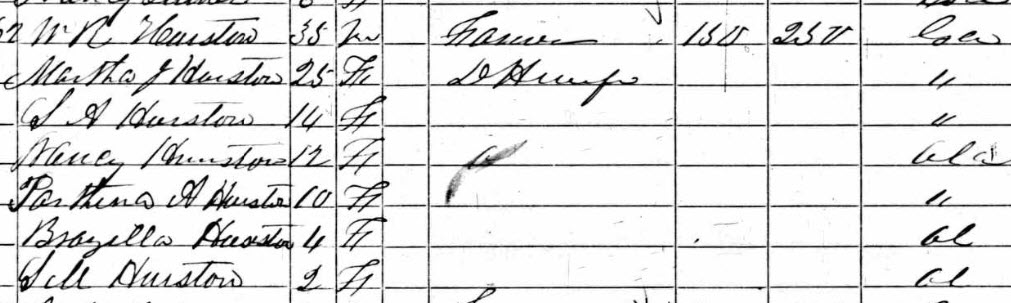 W R Hurston 35 M Farmer 150 250 Geo
Martha J Hurston 25 F D Hunf "
S A Hurston 14 F "
Nancy Hurston 12 F Ala
Parthena A Hurston 10 F "
Brazilla Hurston 4 F Al
S M Hurston 2 F Al